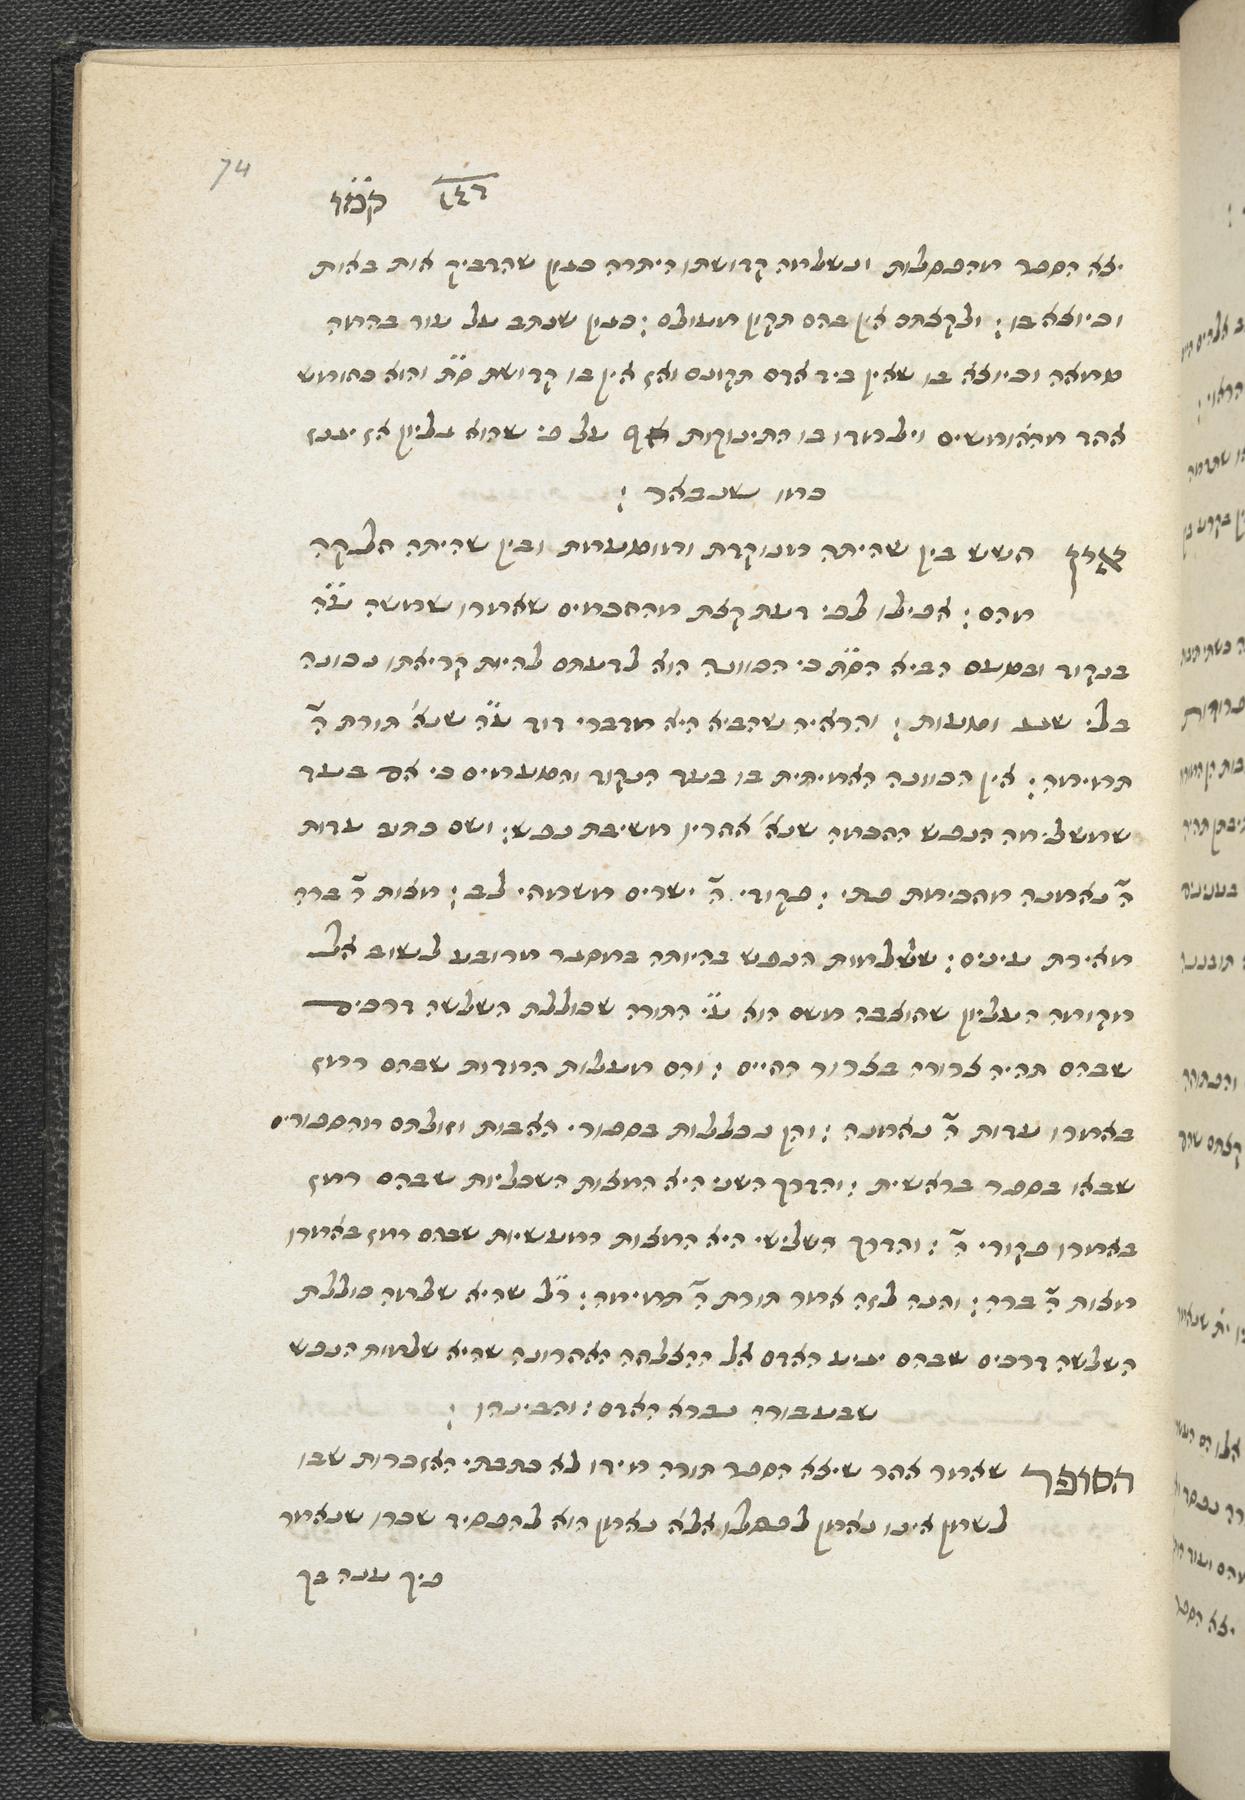 74
דין קמ״ז
יצא הספר מהפסלות ונשלמה קדושתו היתרה כגון שהדביק אות באות
וכיוצא בו ׃ ולקצתם אין בהם תקון מעולם ׃ כגון שנכתב על עור בהמה
טמאה וכיוצא בו שאין ביד אדם תקונם ואז אין בו קדושת ס״ת והוא כחומש
אחד מהחומשים וילמדו בו התינוקות אף על פי שהוא גליון אז יגנז
כמו שנבאר ׃
הפרש בין שהיתה מנוקדת ומוטעמת ובין שהיתה חלקה
מהם ׃ אפילו לפי דעת קצת מהחכמים שאמרו שמשה ע״ה
בנקוד ובטעם הביא הס״ת כי הכוונה הוא לדעתם להיות קריאתו נכונה
בלי שגג וטעות ׃ והראיה שהביא היא מדברי דוד ע״ה שנא׳ תורת ה׳
תמימה ׃ אין הכוונה האמיתית בו בעד הנקוד והטעמים כי אם בעד
שמשלימה הנפש החכמה שנא׳ אחריו משיבת נפש ׃ ושם כתוב עדות
ה׳ נאמנה מחכימת פתי ׃ פקודי ה׳ ישרים משמחי לב ׃ מצות ה׳ ברה
מאירת עינים ׃ ששלמות הנפש בהיותה במסגר מרובע לשוב אל
מקומה העליון שהוצבה משם הוא ע״י התורה שכוללת השלשה דרכים
שבהם תהיה צרורה בצרור החיים ׃ והם מעלות המדות שבהם רמז
באמרו עדות ה׳ נאמנה ׃ והן נכללות בספורי האבות וזולתם מהספורים
שבאו בספר בראשית ׃ והדרך השני היא המצות השכליות שבהם רמז
באמרו פקודי ה׳ ׃ והדרך השלישי היא המצות המעשיות שבהם רמז באמרו
מצות ה׳ ברה ׃ והנה לזה אמר תורת ה׳ תמימה ׃ ר״ל שהיא שלמה כוללת
השלשה דרכים שבהם יגיע האדם אל ההצלחה האחרונה שהיא שלמות הנפש
שבעבורה נברא האדם ׃ והבינהו ׃
הסופר שאמר אחר שיצא הספר תורה מידו לא כתבתי האזכרות שבו
לשמן אינו נאמן לפסלו אלא נאמן הוא להפסיד שכרו שנאמר
פיך ענה בך